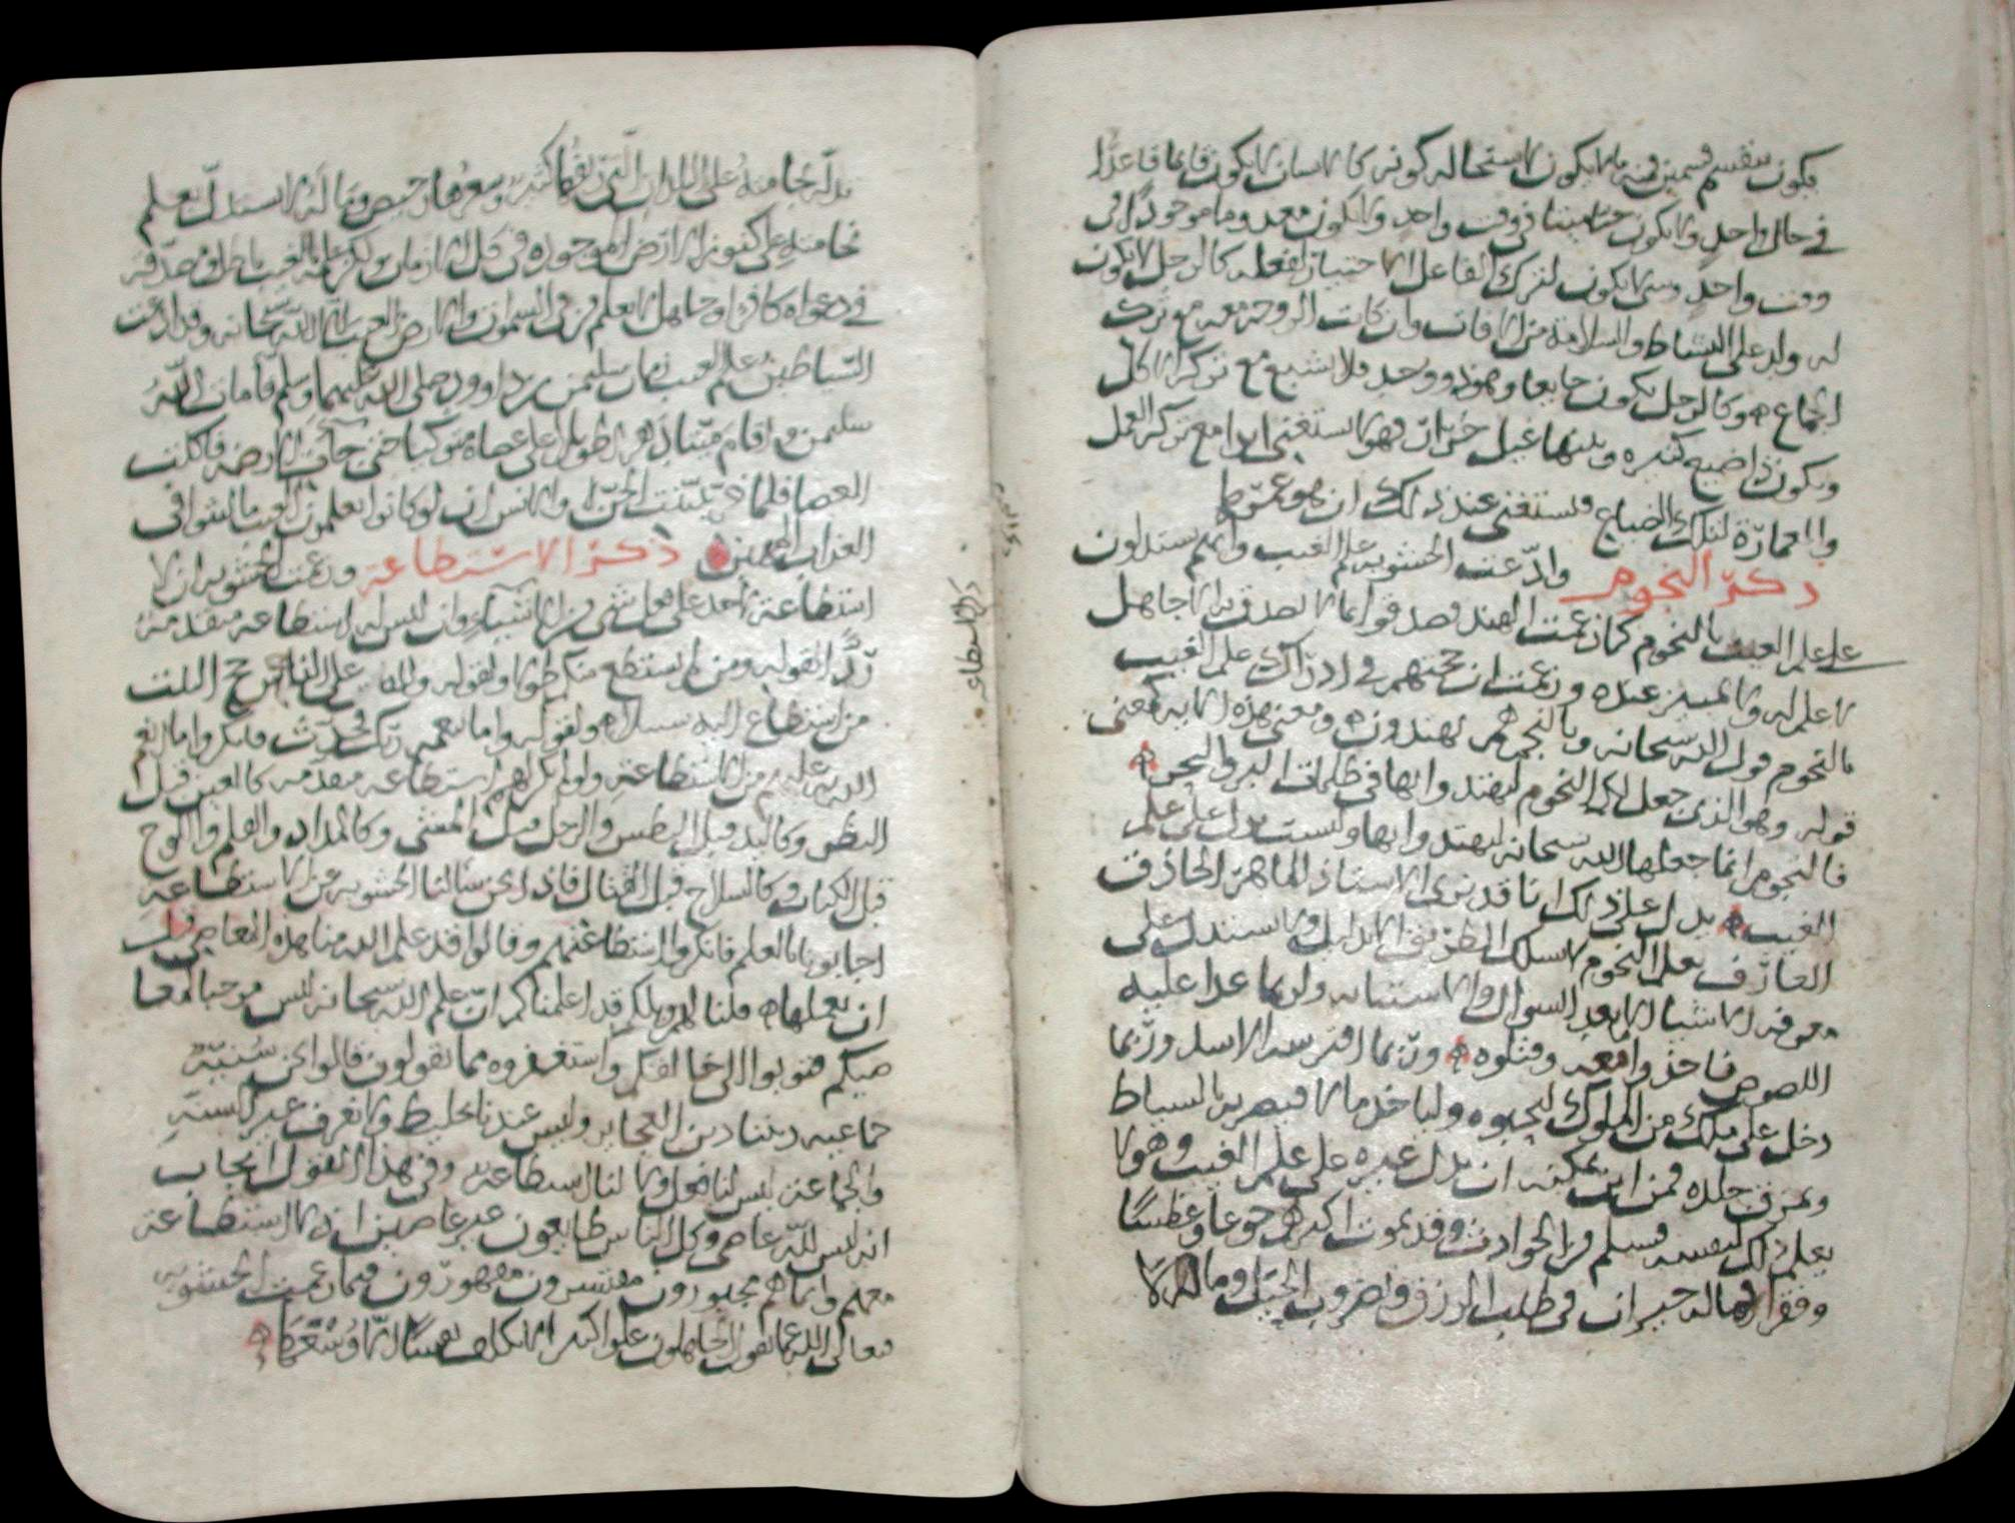 يكون ينقسم قسمين فمنه ما لا يكون لاستحالة كونه كالانسان لا يكون قائما قاعدا
في حال واحد ولا يكون حيا ميتا في وقت واحد ولا يكون معدوما موجودا في
وقت واحد وشي لا يكون لترك الفاعل الاختيار لفعله كالرجل لا يكون
له ولد على النشاط والسلامة من الافات وان كانت الزوجة معه مع ترك
الجماع ه وكالرجل يكون جايعا وهو ذو وجد فلا يشبع مع تركه الاكل
ويكون ذا ضيع كثيره ويلتها عيل خراب فهو لا يستغني ابدا مع تركه العمل
والعمارة لتلك الضياع فيستغني عند ذلك ان هو عمرها
ذكر النجوم وادعت الحشوية علم الغيب وانهم يستدلون
على علم الغيب بالنجوم كما زعمت الهند فصدقوا بما لا يصدق به الا جاهل
لا علم له ولا تمييز عنده وزعمت ان حجتهم في ادراك علم الغيب
بالنجوم قول الله سبحانه وبالنجم هم يهتدون ه ومعنى هذه الاية كمعنى
قوله وهو الذي جعل لكم النجوم لتهتدوا بها في ظلمات البر والبحر ه
فالنجوم انما جعلها الله سبحانه ليهتدوا بها وليست تدل على علم
الغيب ه يدل على ذلك انا قد نرى الاستاذ الماهر الحاذق
العارف بعلم النجوم لا يسلك الطريق الا بدليل ولا يستدل على
معرفة الاشيا الا بعد السوال والاستنباه ولربما عدا عليه
اللصوص فاخذوا ما معه وقتلوه ه وربما افترسه الاسد وربما
دخل على ملك من الملوك ليحبوه ولياخذ مالا فيضربه بالسياط
ويمزق جلده فمن اين يمكنه ان يدل غيره على علم الغيب وهو لا
يعلم ذلك لنفسه فيسلم من الحوادث وقد يموت اكثرهم جوعا وعطشا
وفقرا وهو حيران في طلب الرزق وضروب الحيل وما
يدله نجامته على البلدان التي نفعها كثير وسعرها رخيص وماله لا يستدل بعلم
نجامته على كنوز الارض الموجوده في كل الازمان ولكن علمه بالغيب باطل ومصدقه
في دعواه كافر او جاهل لا يعلم من في السموات والارض الغيب الا الله سبحانه وقد ادعت
الشياطين علم الغيب زمان سليمن بن داوود صلى الله عليهما وسلم فامات الله
سليمن واقام ميتا دهرا طويلا على عصاه متوكيا حتى جات الارضه فاكلت
العصا فلما خر تبينت الجن والانس ان لو كانوا يعلمون الغيب ما لبثوا في
العذاب المهين ه ذكر الاستطاعة وزعمت الحشوية ان لا
استطاعة لاحد على فعل شي من الاشياء وان ليس له استطاعة متقدمة
ردا لقوله ومن لم يستطع منكم طولا ولقوله ولله على الناس حج البيت
من استطاع اليه سبيلا ه ولقوله واما بنعمة ربك فحدث فانكروا ما انعم
الله به عليهم من الاستطاعة ولو لم يكن لهم استطاعة متقدمة كالعين قبل
النظر وكاليد قبل البطش والرجل قبل المشي وكالمداد والقلم واللوح
قبل الكتاب وكالسلاح قبل القتال فاذا نحن سالنا الحشوية عن الاستطاعة
اجابونا بالعلم فانكروا استطاعتهم وقالوا قد علم الله منا هذه المعاصي قبل
ان نعملها ه قلنا لهم ويلكم قد اعلمناكم ان علم الله سبحانه ليس موجبا
عليكم فتوبوا الى خالقكم واستغفروه مما تقولون قالوا نحن سنية
جماعيه ديننا دين العجايز وليس عندنا تخليط ولا نعرف غير السنة
والجماعة ليس لنا فعل ولا لنا استطاعة وفي هذا القول ايجاب
انه ليس لله عاصي وكل الناس طايعون غير عاصين اذ لا استطاعة
معهم وانما هم مجبورون مقسرون مقهورون فيما زعمت الحشوية
تعالى الله عما يقول الجاهلون علوا كبيرا لا يكلف نفسا الا وسعها ه
ذكر الاستطاعه